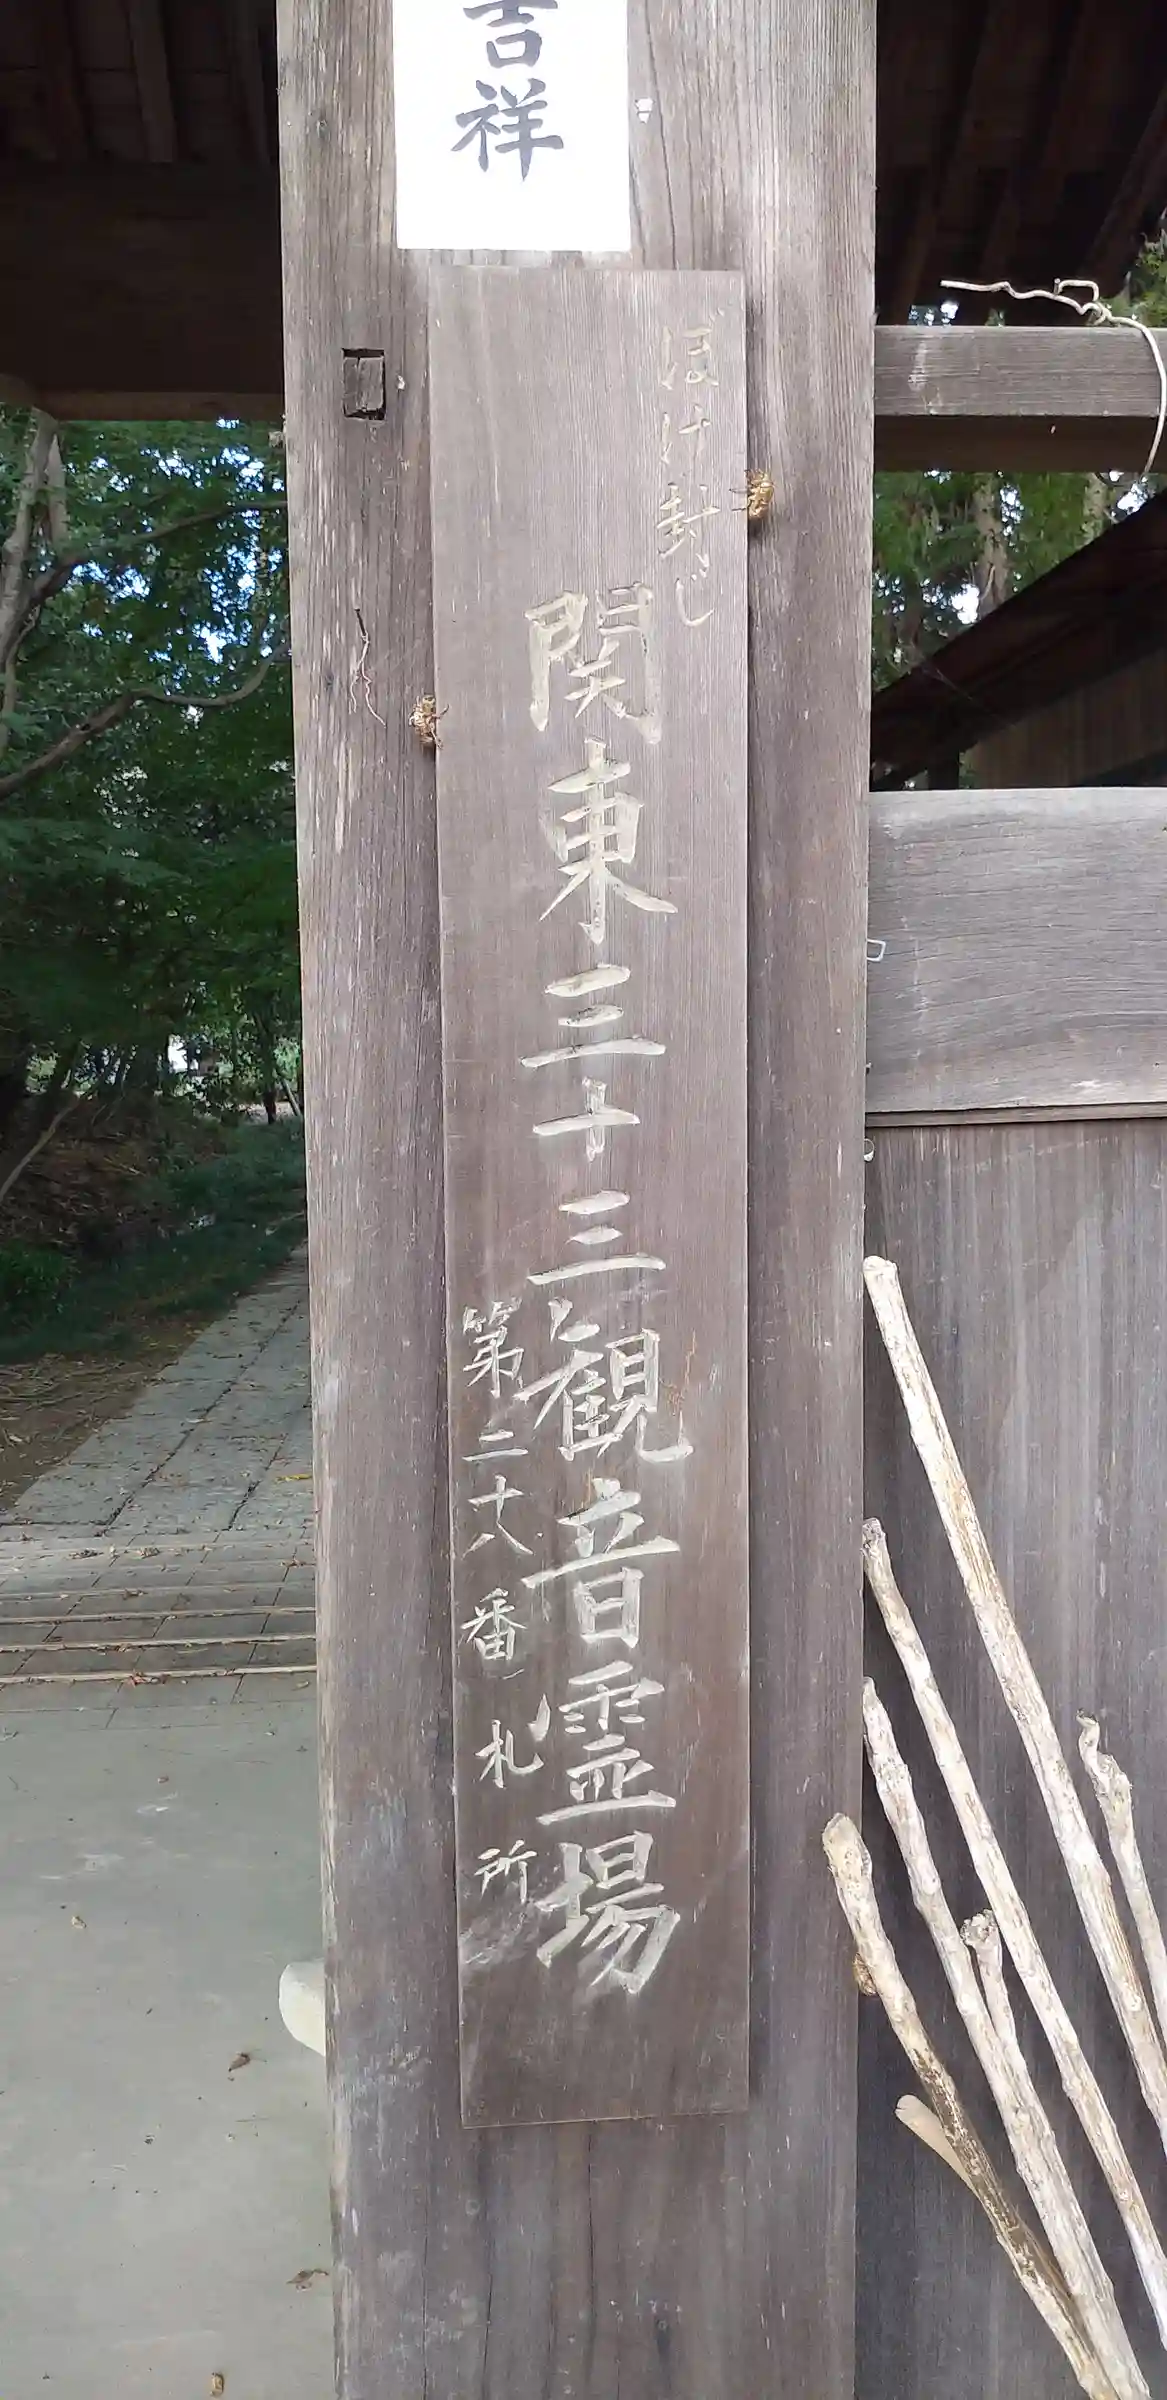 吉祥
ぼけ封じ
関東三十三観音霊場
第二十八番札所